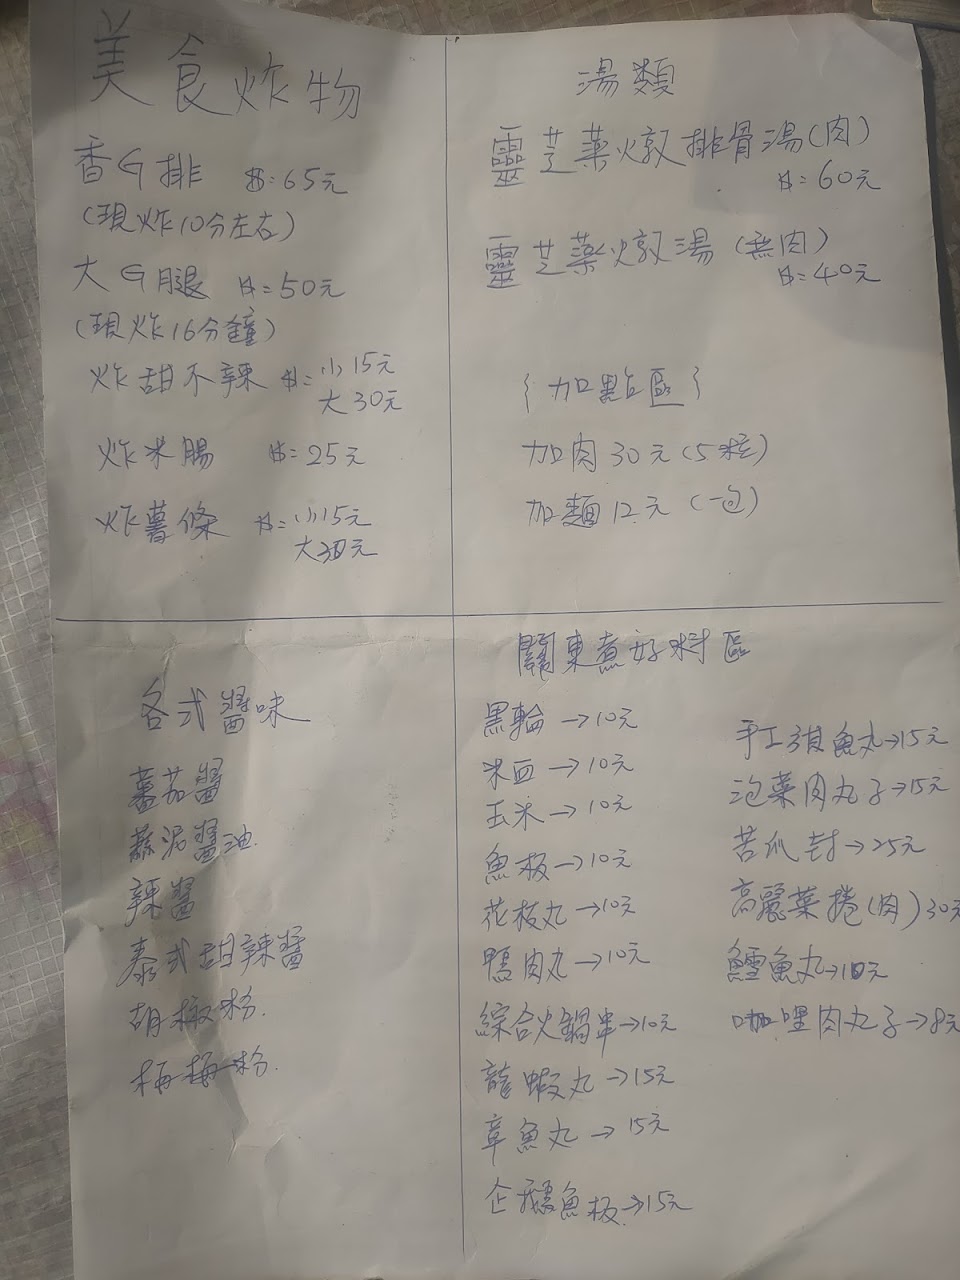 美食炸物
香G排 $=65元
(現炸10分左右)
大G腿 $=50元
(現炸16分鐘)
炸甜不辣 $=小15元
大30元
炸米腸 $=25元
炸薯條 $=小15元
大30元
湯類
靈芝藥燉排骨湯(肉)
$=60元
靈芝藥燉湯(無肉)
$=40元
{加點區}
加肉30元(5粒)
加麵12元(一包)
各式醬味
蕃茄醬
蒜泥醬油
辣醬
泰式甜辣醬
胡椒粉
梅粉
關東煮好料區
黑輪→10元
米血→10元
玉米→10元
魚板→10元
花枝丸→10元
鴨肉丸→10元
綜合火鍋串→10元
龍蝦丸→15元
章魚丸→15元
企鵝魚板→15元
手工旗魚丸→15元
泡菜肉丸子→15元
苦瓜封→25元
高麗菜捲(肉)30元
鱈魚丸→10元
咖哩肉丸子→8元